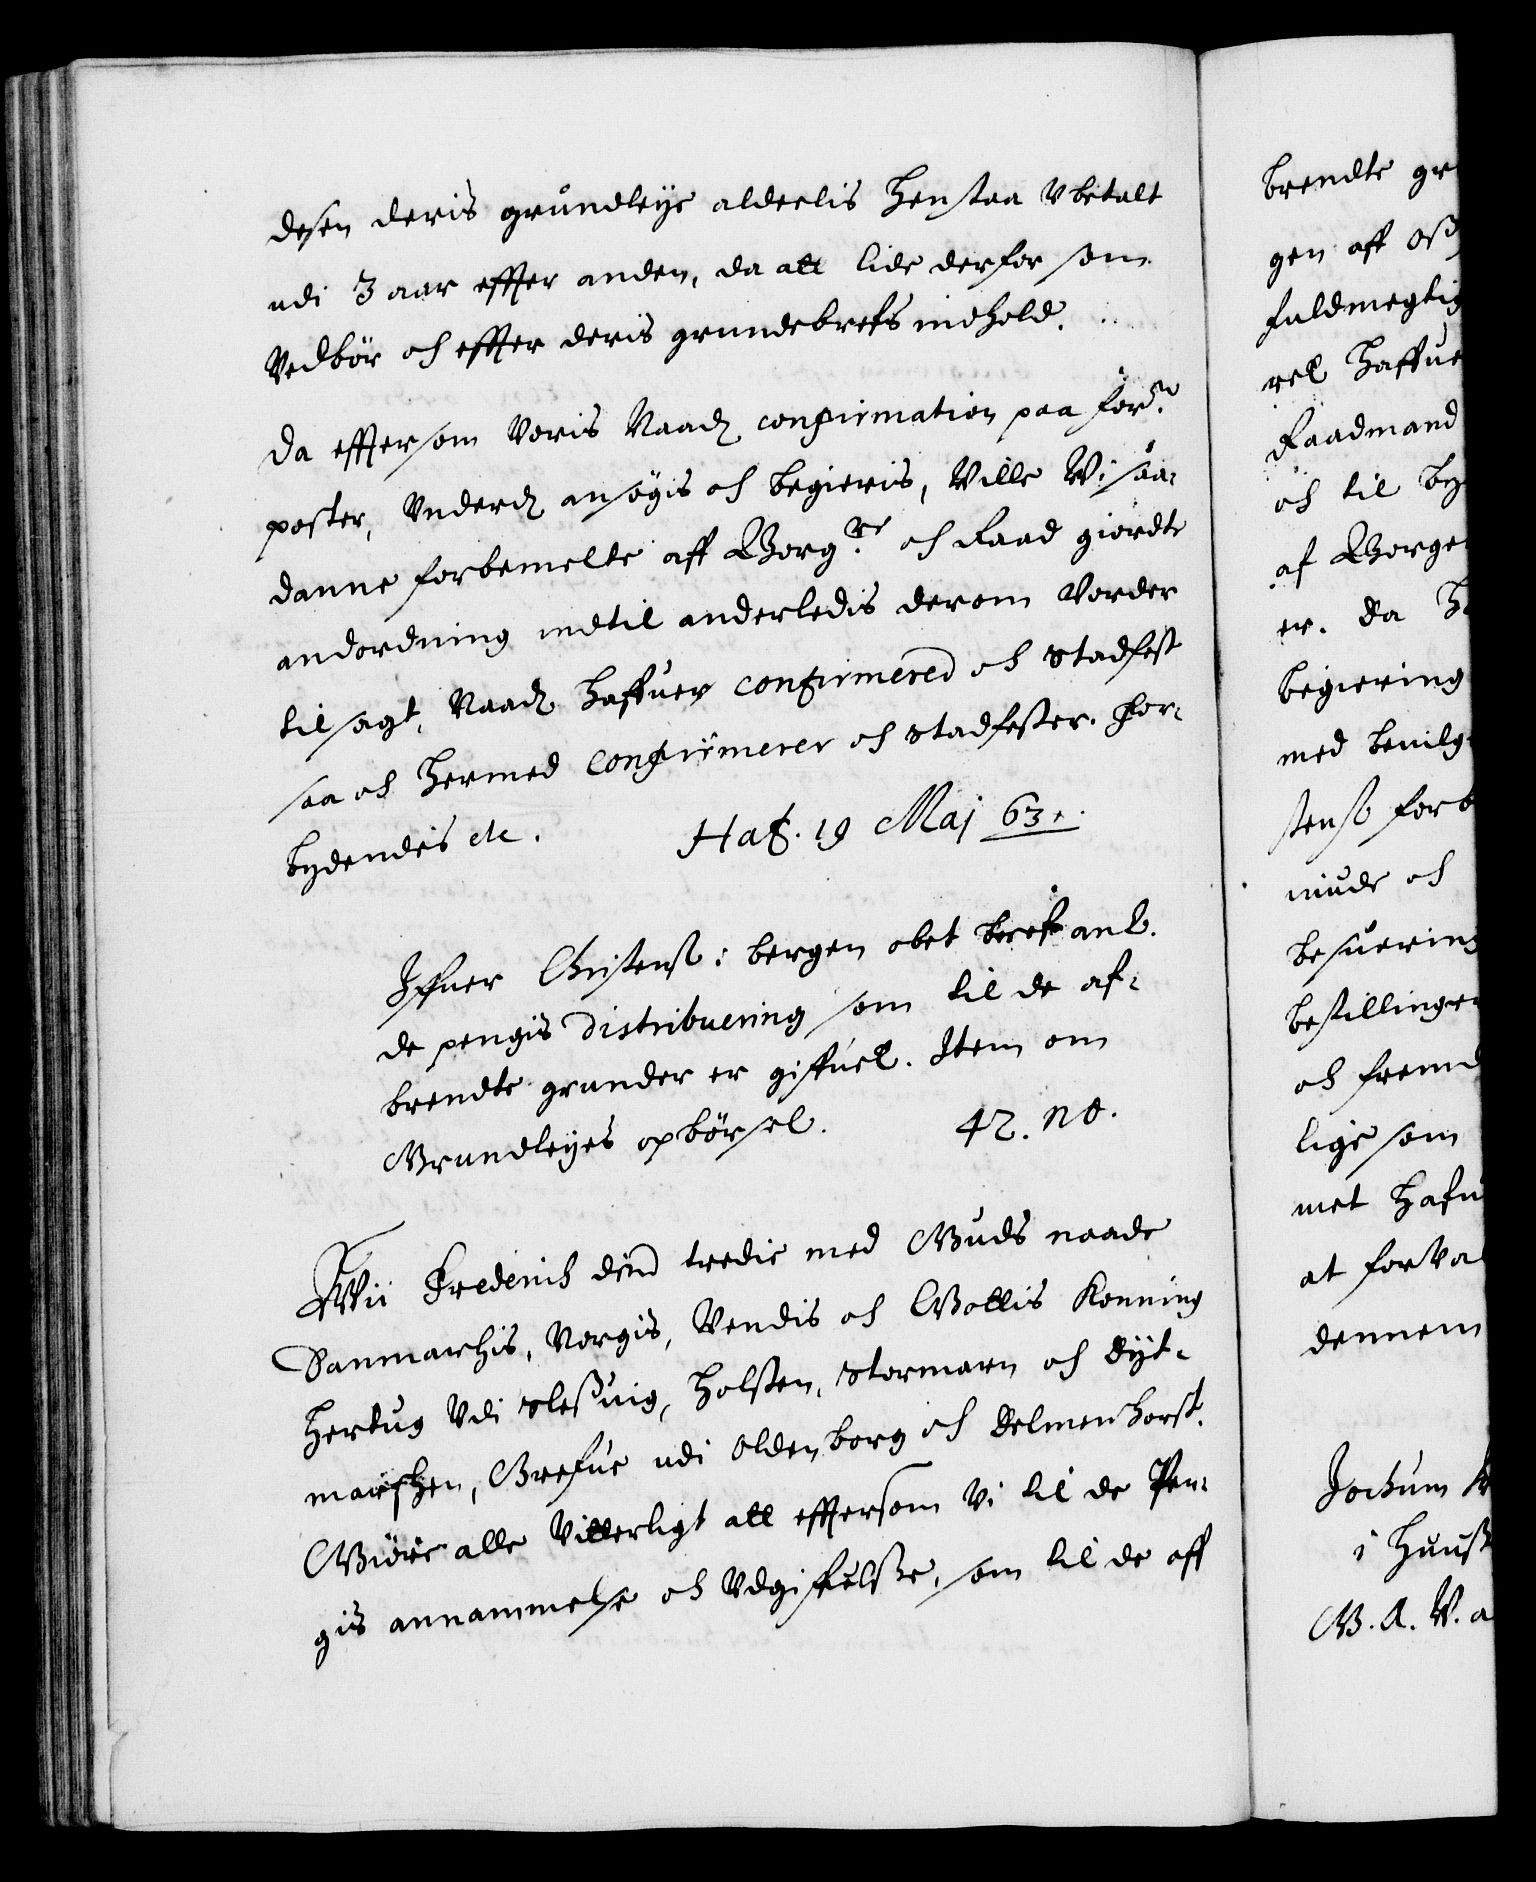 desen deris grundleye aldelis henstaa Vbetalt
udi 3 aar effter anden, da att lide derfor som
Vedbör och effter deris grundebrefs indhold.
Da effter som Voris Naad confirmation paa forne
poster, Underd ansøgis och begieris, Ville Wi saa-
danne forbemelte aff Borgre och Raad giordte
andordning indtil anderledis derom Vorder
tilsagt, Naad haffuer confirmered och Stadfest
saa och hermed confirmerer och Stadfester. For-
bydendes etc. Haf. 19 Maj 63.
Christenß i bergen obet bref anl.
de pengis distribuering som til de af-
brendte grunder er giffuet. Item om
Grundleyes opbörsel. 42. no.
Wii Frederich dend tredie med Guds naade
Danmarckis, Norgis, Vendis och Gottis Konning
Hertug Udi Sleßuig, Holsten, Stormarn och Dyt-
marschen, Grefue udi Oldenborg och Delmenhorst.
Giöre alle Vitterligt att effter som Vi til de Pen-
gis annammelse och Udgiffuelße, som til de aff
brendte gr
gen aff oß
fuldmegtig
ret haffue
Raadmand
och til by
af Borge
er. Da h
begiering
med beuilg
stenß forb
niude och
besuering
bestillinge
och fremd
lige som
met hafu
at forva
dennem
Jochum
i Huuß
G. A. V. a